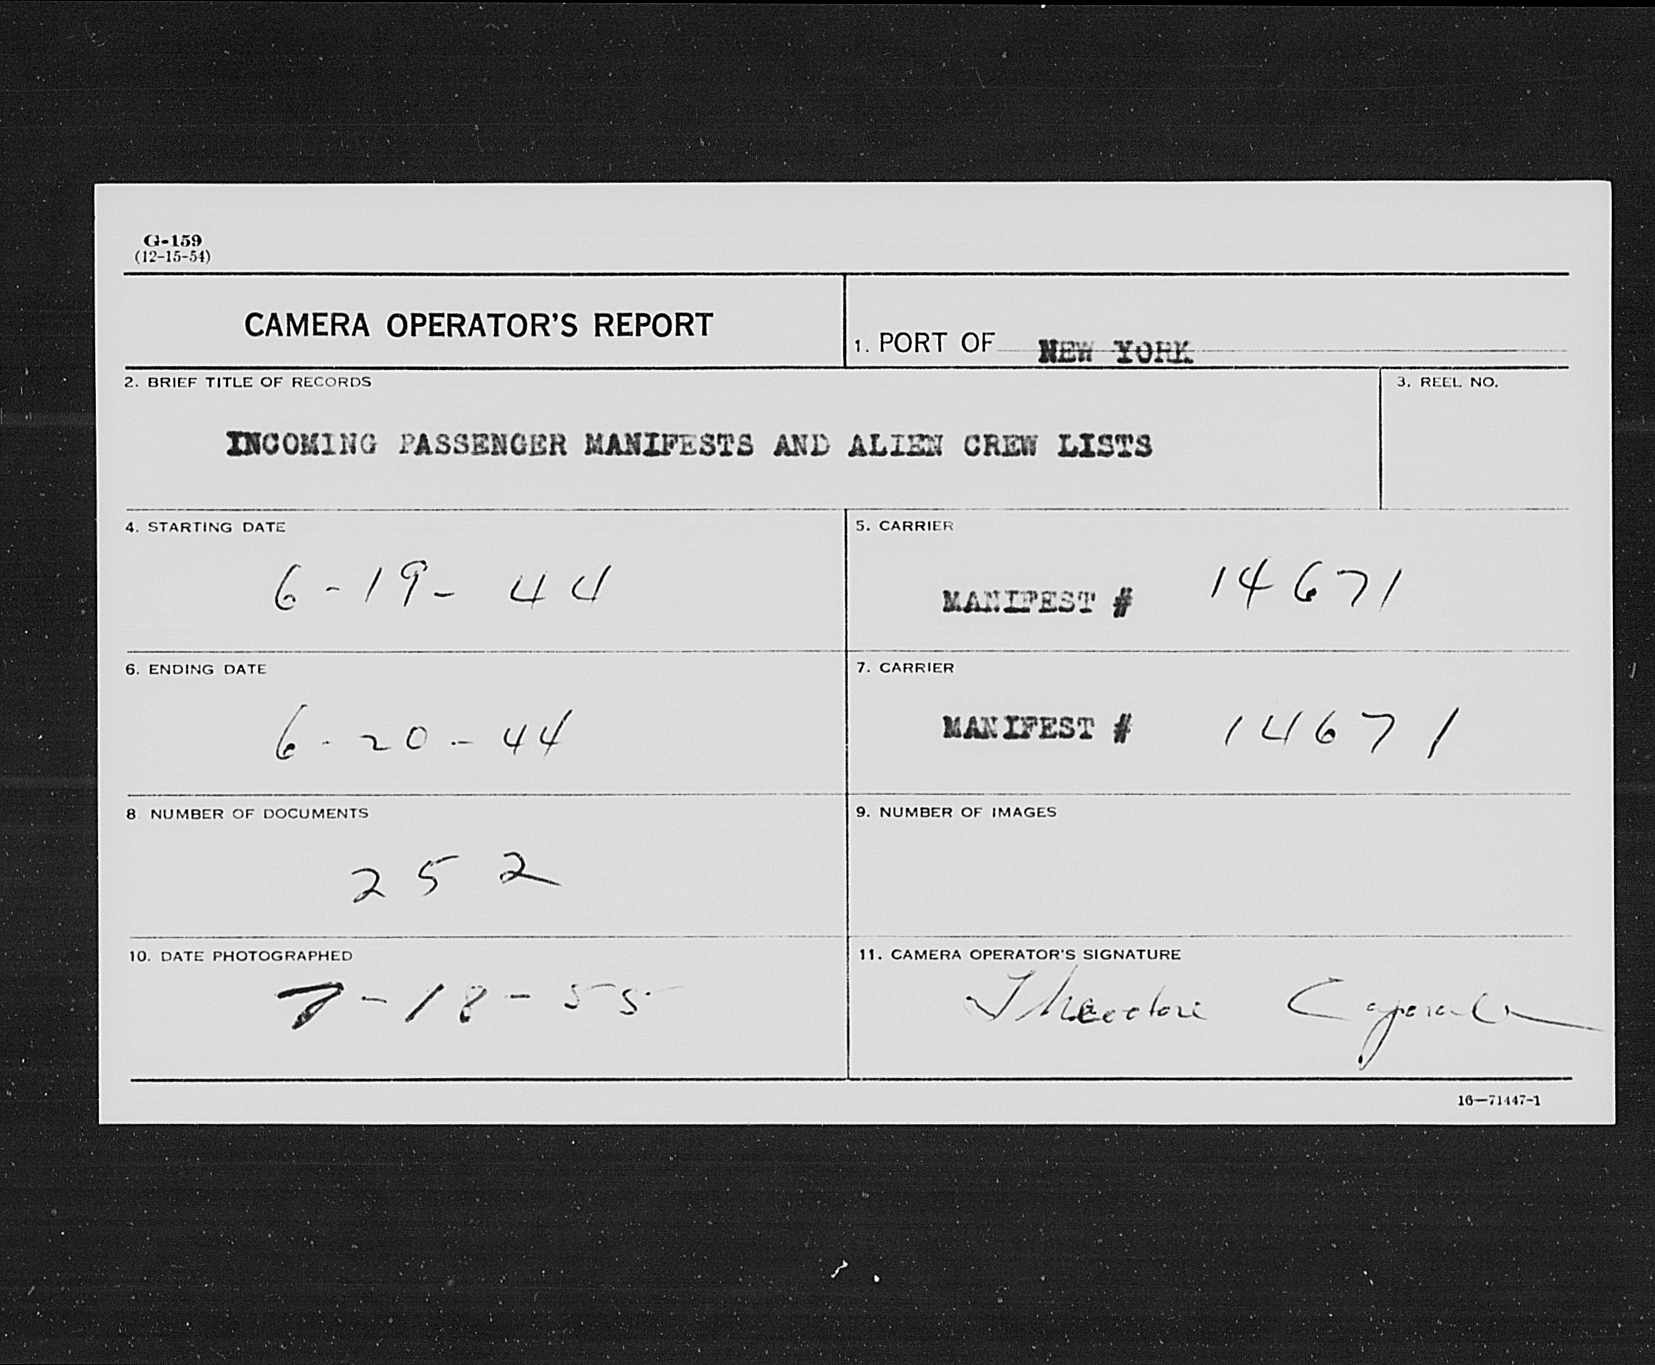 G-159
(12-15-54)
CAMERA OPERATOR'S REPORT
1. PORT OF NEW YORK
2. BRIEF TITLE OF RECORDS
3. REEL NO.
INCOMING PASSENGER MANIFESTS AND ALIEN CREW LISTS
4. STARTING DATE
5. CARRIER
6-19-44
MANIFEST # 14671
6. ENDING DATE
7. CARRIER
6-20-44
MANIFEST # 14671
8 NUMBER OF DOCUMENTS
9. NUMBER OF IMAGES
252
10. DATE PHOTOGRAPHED
11. CAMERA OPERATOR'S SIGNATURE
7-18-55
Theodore
16—71447-1